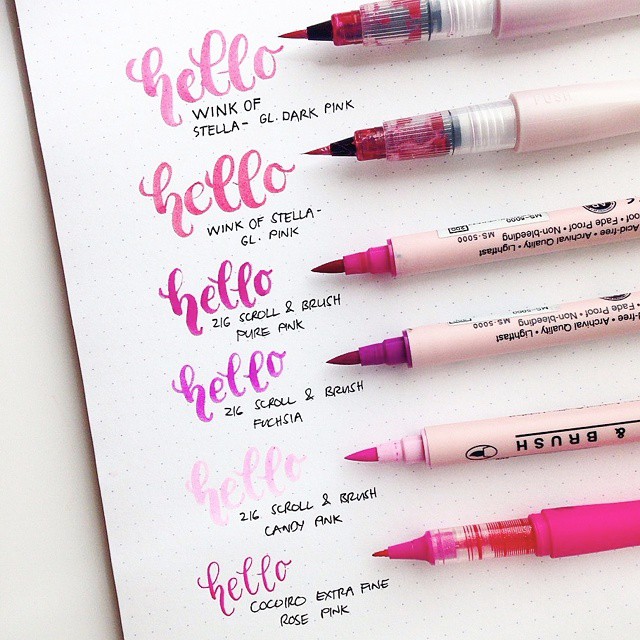 hello
WINK OF
STELLA- GL. DARK PINK
hello
WINK OF STELLA-
GL. PINK
hello
216 SCROLL & BRUSH
PURE PINK
hello
216 SCROLL & BRUSH
FUCHSIA
hello
216 SCROLL & BRUSH
CANDY PINK
hello
COCOIRO EXTRA FINE
ROSE PINK
MS-5000
Acid-free • Archival Quality • Lightfast
Fade Proof • Non-bleeding
MS-5000
Archival Quality • Lightfast
Fade Proof • Non-bleeding
& BRUSH